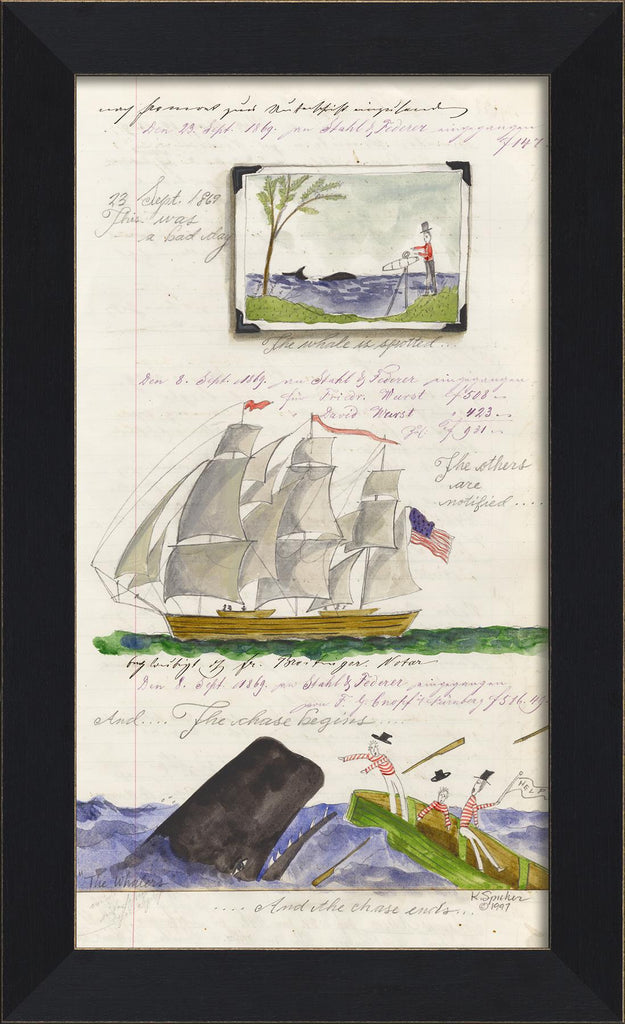 nach Hemort zur Unterschrift einzusenden
Den 23. Sept. 1869. an Stahl & Federer eingegangen
f 147
23 Sept. 1869
This was
a bad day
The whale is spotted...
Den 8. Sept. 1869. an Stahl & Federer eingegangen
für Friedr. Wurst f 508 -
David Wurst " 423 -
f 931 -
The others
are
notified....
fr. Notar
Den 8. Sept. 1869. an Stahl & Federer eingegangen
von F. G. Nürnberg f 516.49
And.... The chase begins....
HELP
"The Whalers"
K. Spicher
©1997
.... And the chase ends...